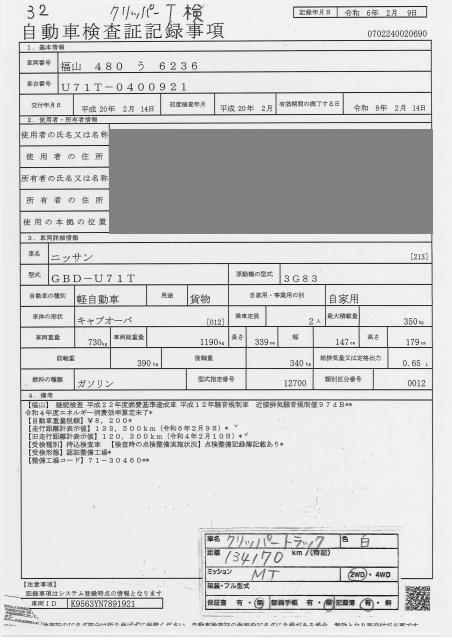 32 クリッパーT検
記録年月日 令和 6年 2月 9日
自動車検査証記録事項
0702240020690
1．基本情報
車両番号 福山 480 う 6236
車台番号 U71T-0400921
交付年月日 平成20年 2月 14日 初度検査年月 平成20年 2月 有効期間の満了する日 令和 8年 2月 14日
2．使用者・所有者情報
使用者の氏名又は名称
使用者の住所
所有者の氏名又は名称
所有者の住所
使用の本拠の位置
3．車両詳細情報
車名 ニッサン [213]
型式 GBD-U71T 原動機の型式 3G83
自動車の種別 軽自動車 用途 貨物 自家用・事業用の別 自家用
車体の形状 キャブオーバ [012] 乗車定員 2人 最大積載量 350kg
車両重量 730kg 車両総重量 1190kg 長さ 339cm 幅 147cm 高さ 179cm
前軸重 390kg 後軸重 340kg 総排気量又は定格出力 0.65 L
燃料の種類 ガソリン 型式指定番号 12700 類別区分番号 0012
4．備考
【福山】 継続検査 平成22年度燃費基準達成車 平成12年騒音規制車 近接排気騒音規制値97dB**
令和4年度エネルギー消費効率算定未了*
【自動車重量税額】¥8,200*
【走行距離計表示値】133,500km（令和6年2月9日）*
【旧走行距離計表示値】120,300km（令和4年2月10日）*
【受検種別】持込検査車 【検査時の点検整備実施状況】点検整備記録簿記載あり*
【受検形態】認証整備工場*
【整備工場コード】71-30460**
車名 クリッパートラック 色 白
距離 134170 km / (特記)
ミッション MT 2WD・4WD
架装・フル型式
保証書 有・無 整備手帳 有・無 記録簿 有・無
【注意事項】
記録事項はシステム登録時点の情報となります
車両ID K9563YN7891921